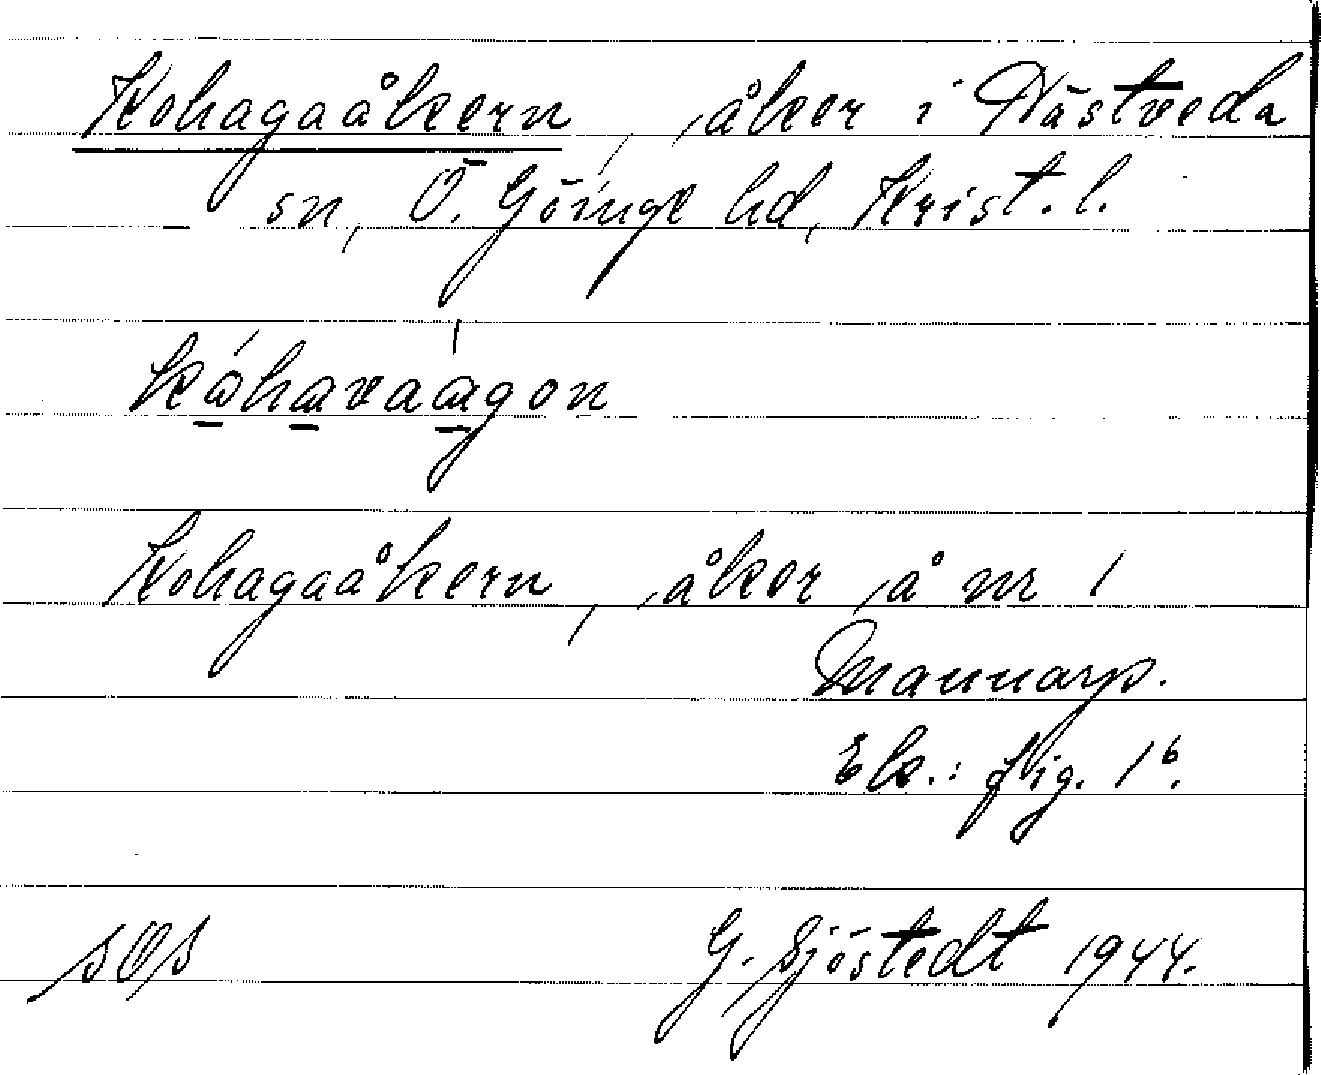 Kohagaåkern, åker i Hästveda
sn, Ö. Göinge hd, Krist. l.
kóhavaágon
Kohagaåkern, åker å nr 1
Mannarp.
Ek.: fig. 1⁶.
G. Sjöstedt 1944.